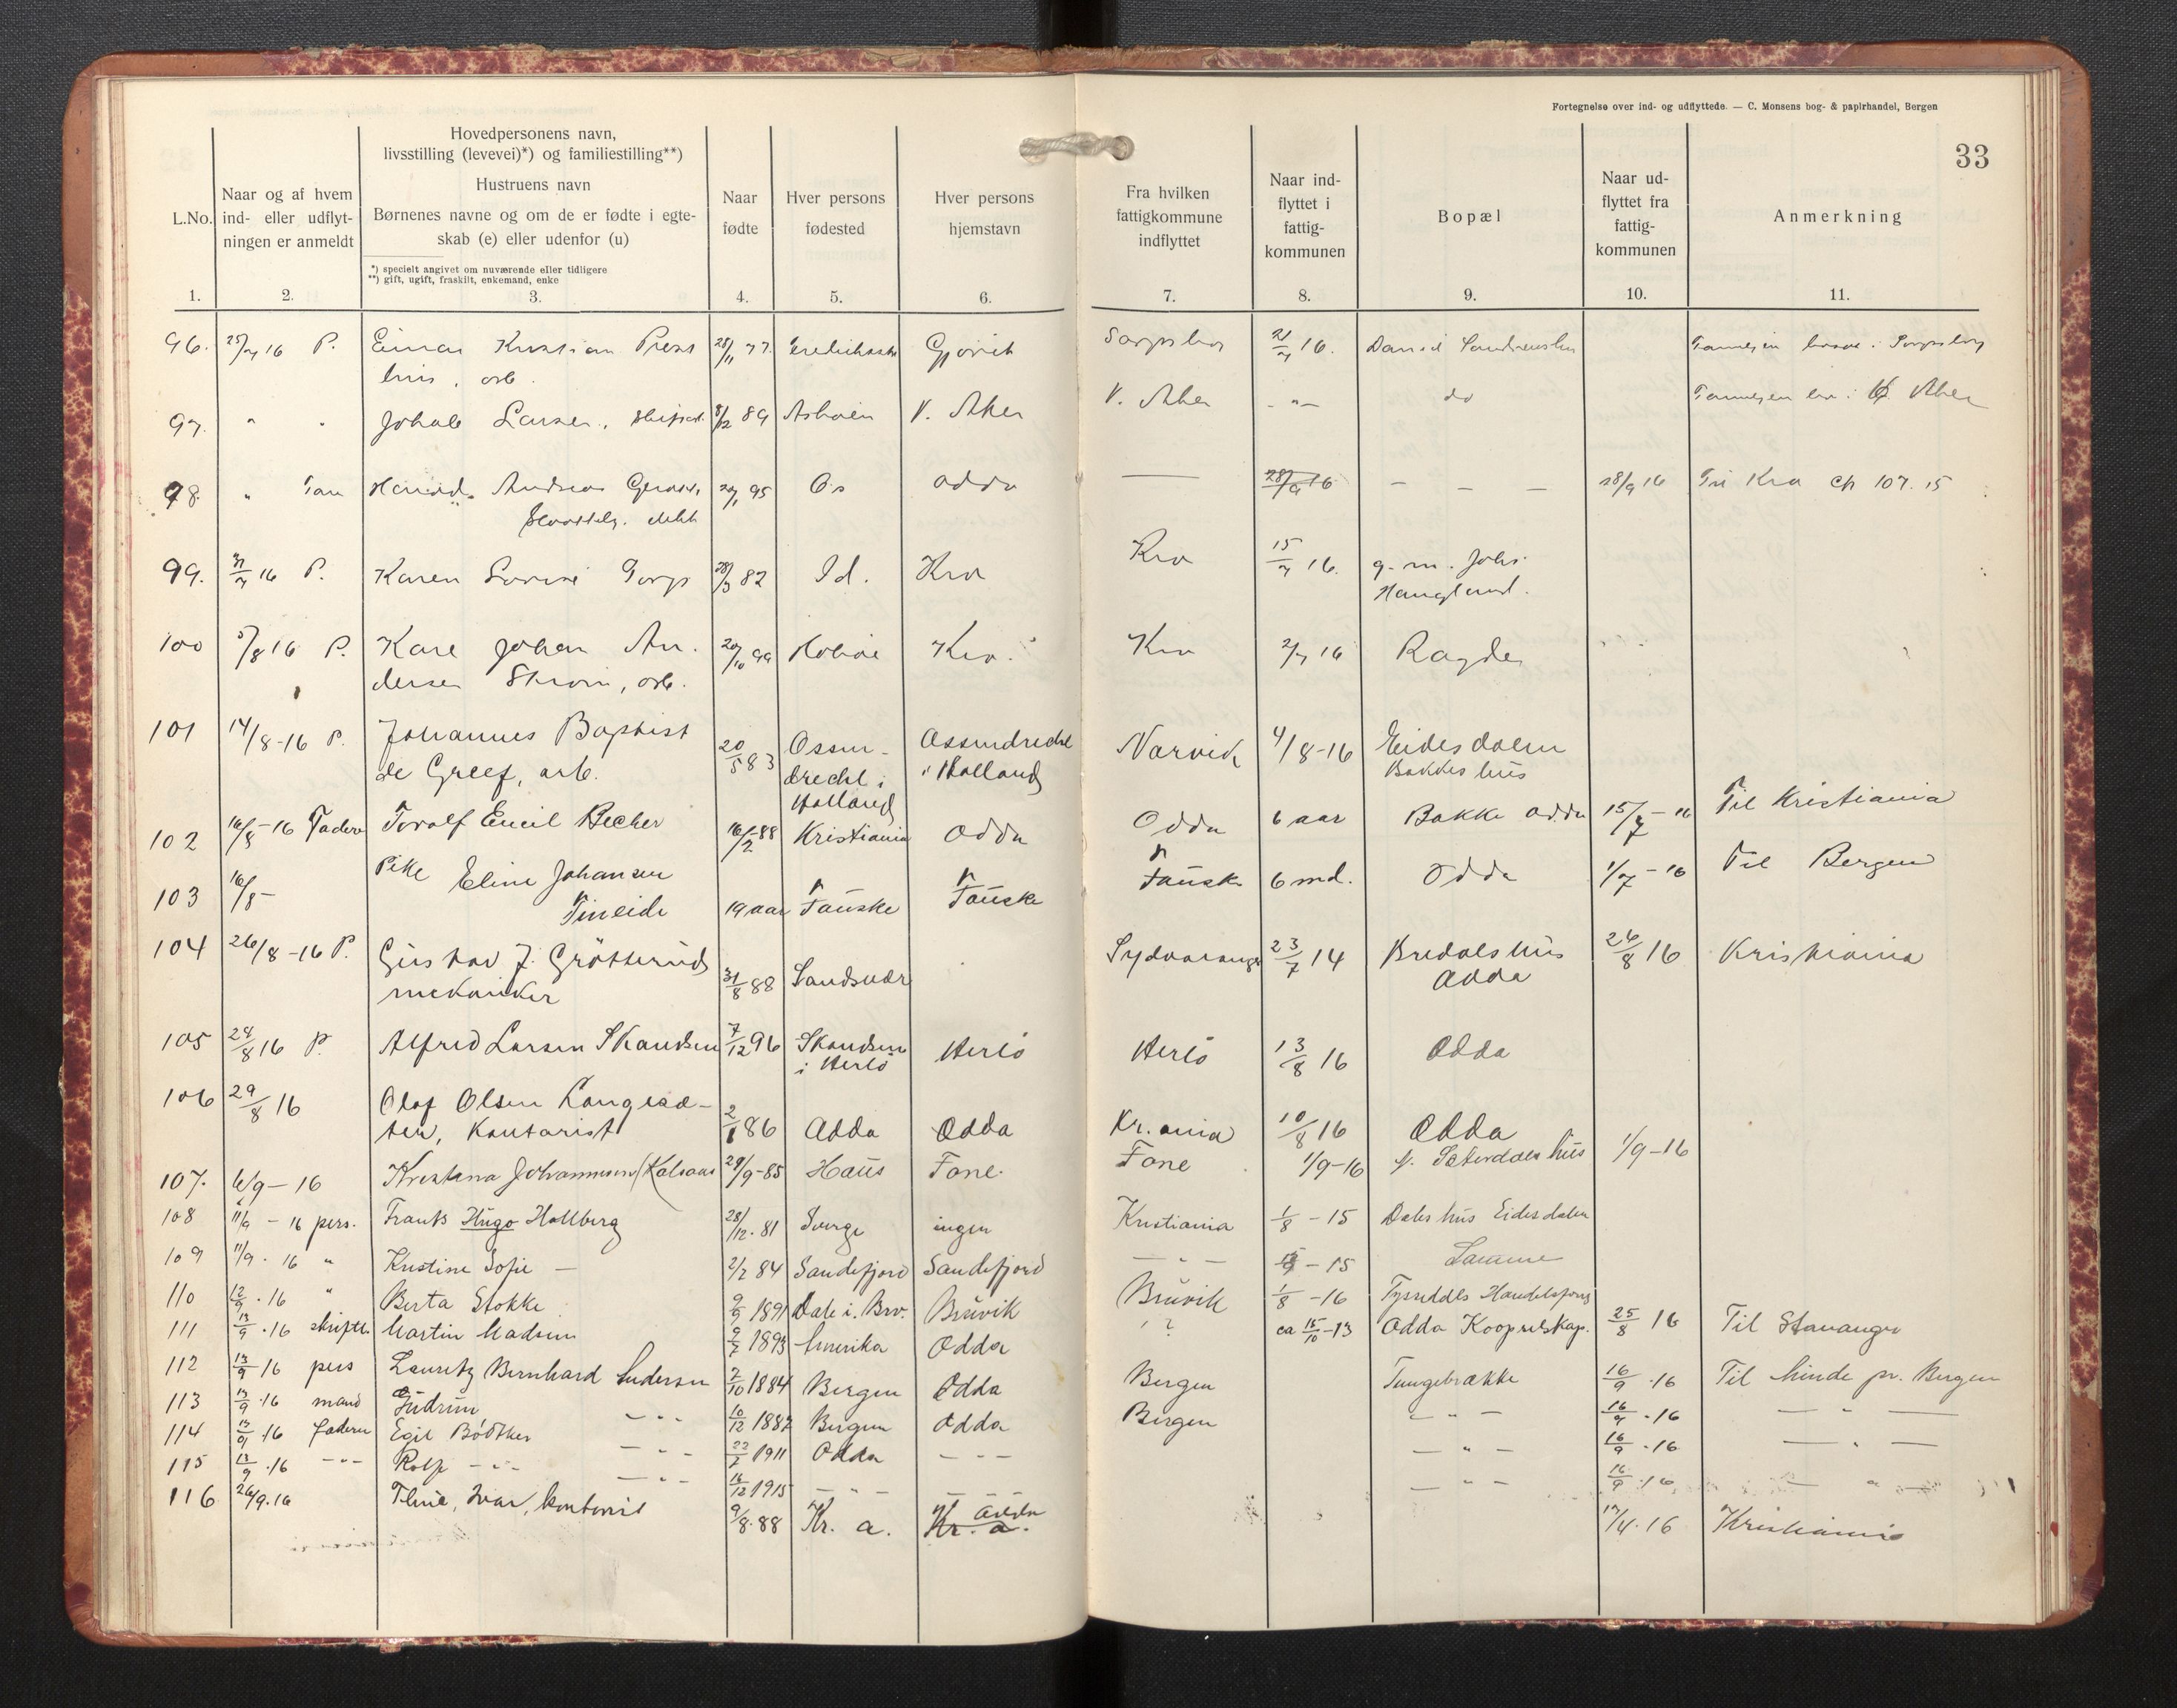 Fortegnelse over ind- og udflyttede. — C. Monsens bog- & papirhandel, Bergen
33
L.No.
1.
Naar og af hvem
ind- eller udflyt-
ningen er anmeldt
2.
Hovedpersonens navn,
livsstilling (levevei)*) og familiestilling**)
Hustruens navn
Børnenes navne og om de er fødte i egte-
skab (e) eller udenfor (u)
*) specielt angivet om nuværende eller tidligere
**) gift, ugift, fraskilt, enkemand, enke
3.
Naar
fødte
4.
Hver persons
fødested
5.
Hver persons
hjemstavn
6.
Fra hvilken
fattigkommune
indflyttet
7.
Naar ind-
flyttet i
fattig-
kommunen
8.
Bopæl
9.
Naar ud-
flyttet fra
fattig-
kommunen
10.
Anmerkning
11.
96. 25/7 16 P. Einar Kristian 28/11 77. Gjøvik Sarpsborg 21/7 16. Familjen Sarpsborg
hus, arb.
97. " " Johale Larsen, 8/12 89 Askøien V. Aker V. Aker - " - do V. Aker
98. " Andreas 95 Os Odda — 28/9 16 — — — 28/9 16 Kra 107. 15
99. 31/7 16 P. Karen Lovise 28/3 82 Id. Kra Kra 15/7 16. g. m. Johs
Haugland.
100 5/8 16 P. Karl Johan An-
dersen Strøm, arb. 20/10 99 Hobøl Kra. Kra 2/7 16 Ragde
101 14/8-16 P. Johannes Baptist
de Greef, arb. 20/5 83 Ossen-
drecht i
Holland Ossendrecht
i Holland Narvik 4/8-16 Eidesdalen
Bakkes hus
102 16/8-16 Faderen Toralf Emil Becher 16/2-88 Kristiania Odda Odda 6 aar Bakke Odda 15/7-16 Til Kristiania
103 16/8- Pike Eline Johansen
Fineide 19 aar Fauske Fauske Fauske 6 md. Odda 1/7-16 Til Bergen
104 26/8-16 P. Gustav J. Grötterud
mekaniker 31/8 88 Sandsvær Sydvaranger 23/7 14 Bredals hus
Odda 26/8 16 Kristiania
105 24/8 16 P. Alfred Larsen Skandsen 7/12 96 Skandsen
i Herlö Herlö Herlö 13/8 16 Odda
106 29/8 16 Olaf Olsen Langesæ-
ter, Kontorist 2/1 86 Odda Odda Kr.ania 10/8 16 Odda
107. 6/9-16 Kristina Johannesen (Kalsaas 29/9-85 Haus Fane. Fane 1/9-16 hus 1/9-16
108 11/9-16 pers. Frants Hugo Hallberg 28/12.81 Sverge ingen Kristiania 1/8-15 Dales hus Eidesdalen
109 11/9.16 " Kristine Sofie — 2/2 84 Sandefjord Sandefjord — " - 15 Samme
110 12/9.16 " Berta Stokke 9/9 1891 Dale i. Bru. Bruvik Bruvik 1/8-16 Tyssedals
111 13/9.16 skriftl. Martin Madsen 9/7 1893 Amerika Odda ? ca 15/10-13 Odda Kooprelskap. 25/8 16 Til Stavanger
112 13/9 16 pers Lauritz Bernhard Andersen 2/10 1884 Bergen Odda Bergen Tungebrække 16/9.16 Til Minde pr. Bergen
113 13/9.16 mand Gudrun - " - 10/12 1887 Bergen Odda Bergen - " - 16/9.16 — " —
114 13/9.16 faderen Egil Bödtker - " - 22/2 1911 Odda - - - - " - 16/9.16 — " —
115 13/9.16 - " - Rolf - " - - " - 16/12 1915 - " - - " - 16/9.16 — " —
116 26/9.16 Thue, Ivar, kontorist 9/8.88 Kr. a. Kr. a. Odda 17/4.16 Kristiania